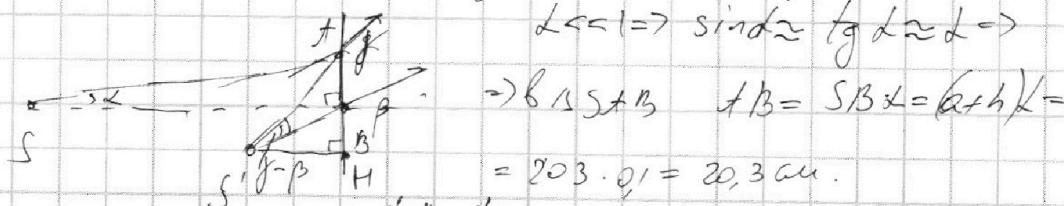 α<<1 => sinα ≈ tg α ≈ α =>
=> в △ SAB AB = SBα = (a+h)α =
= 203 · 0,1 = 20,3 см.
A
γ
α
β
S
B
S' γ-β H